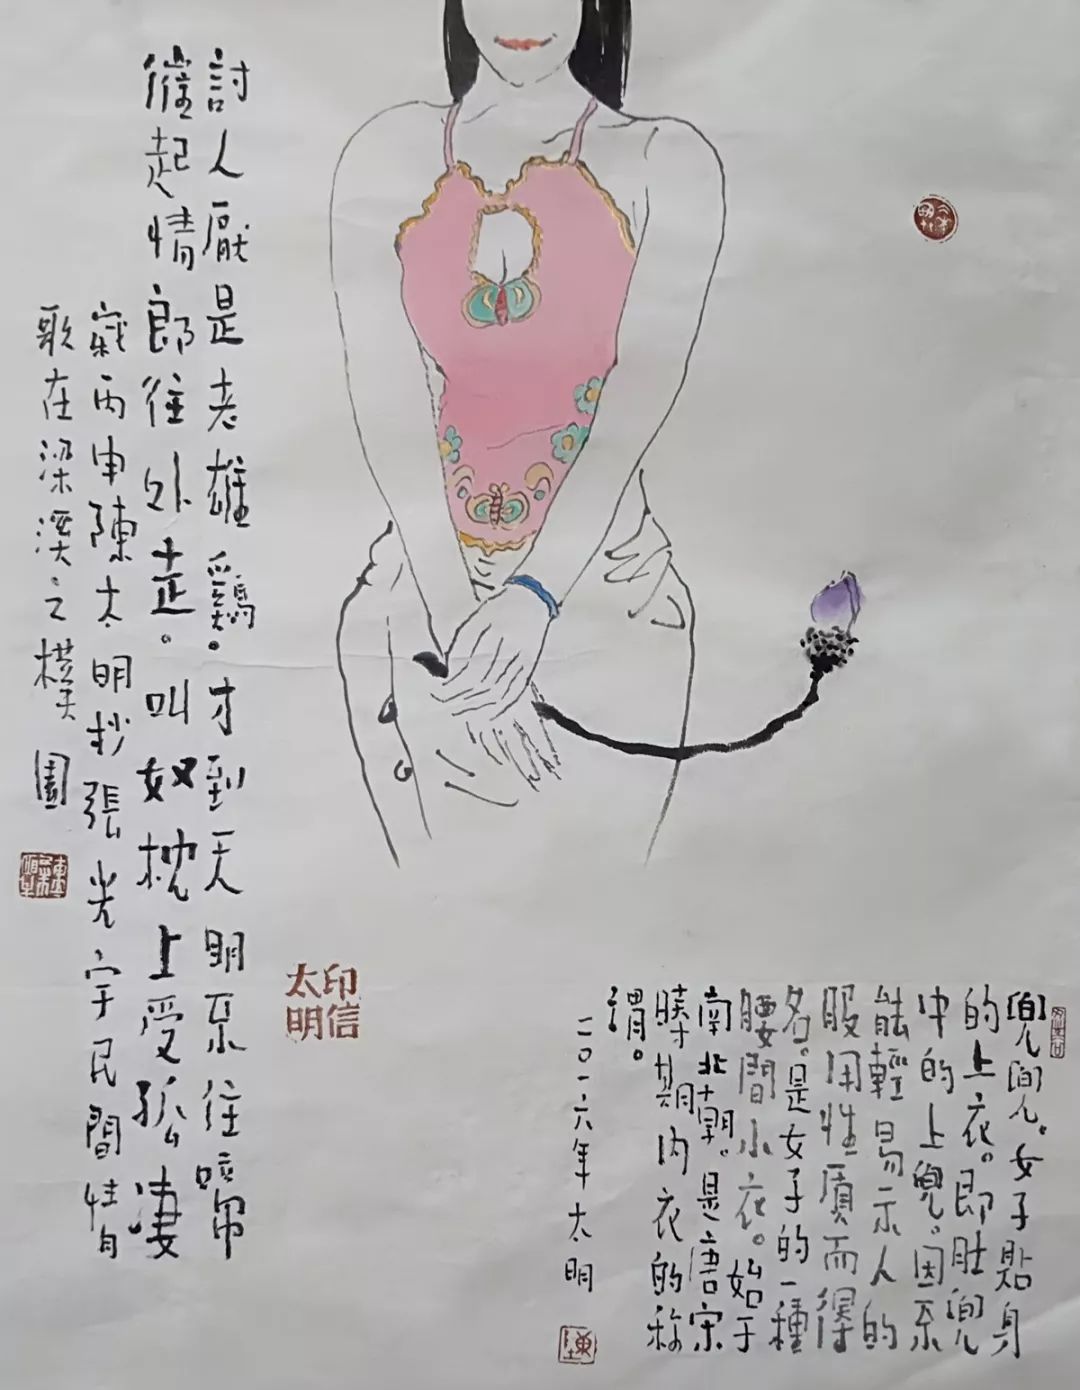 兜兜。女子貼身
的上衣。即肚兜
中的上兜。因不
能輕易示人的
服用性質而得
名。是女子的一種
腰間小衣。始于
南北朝。是唐宋
時期内衣的称
謂。
二〇一六年太明
印信
太明
討人厭是老雄鷄。才到天明不住啼
催起情郎往外走。叫奴枕上受孤凄
歲丙申陳太明抄張光宇民間情
歌在梁溪之樸園